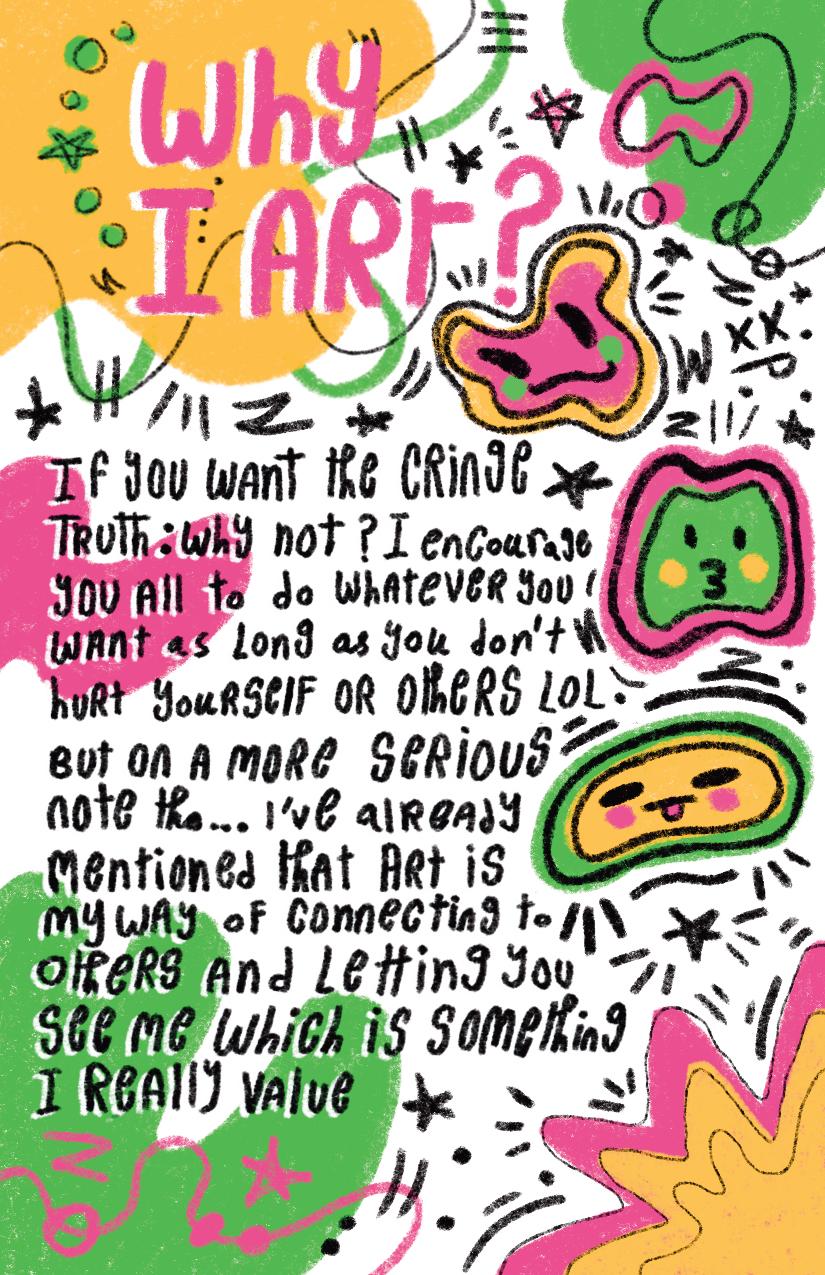 Why
I ART?
XX
If you want the cringe
Truth: why not? I encourage
you all to do whatever you
want as long as you don't
hurt yourself or others LOL.
But on a more serious
note tho... I've already
mentioned that Art is
my way of connecting to
others and letting you
see me which is something
I really value